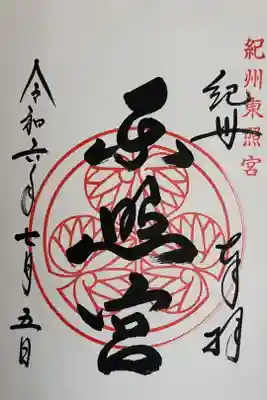 紀州東照宮
紀州 奉拝
東照宮
令和六年七月五日